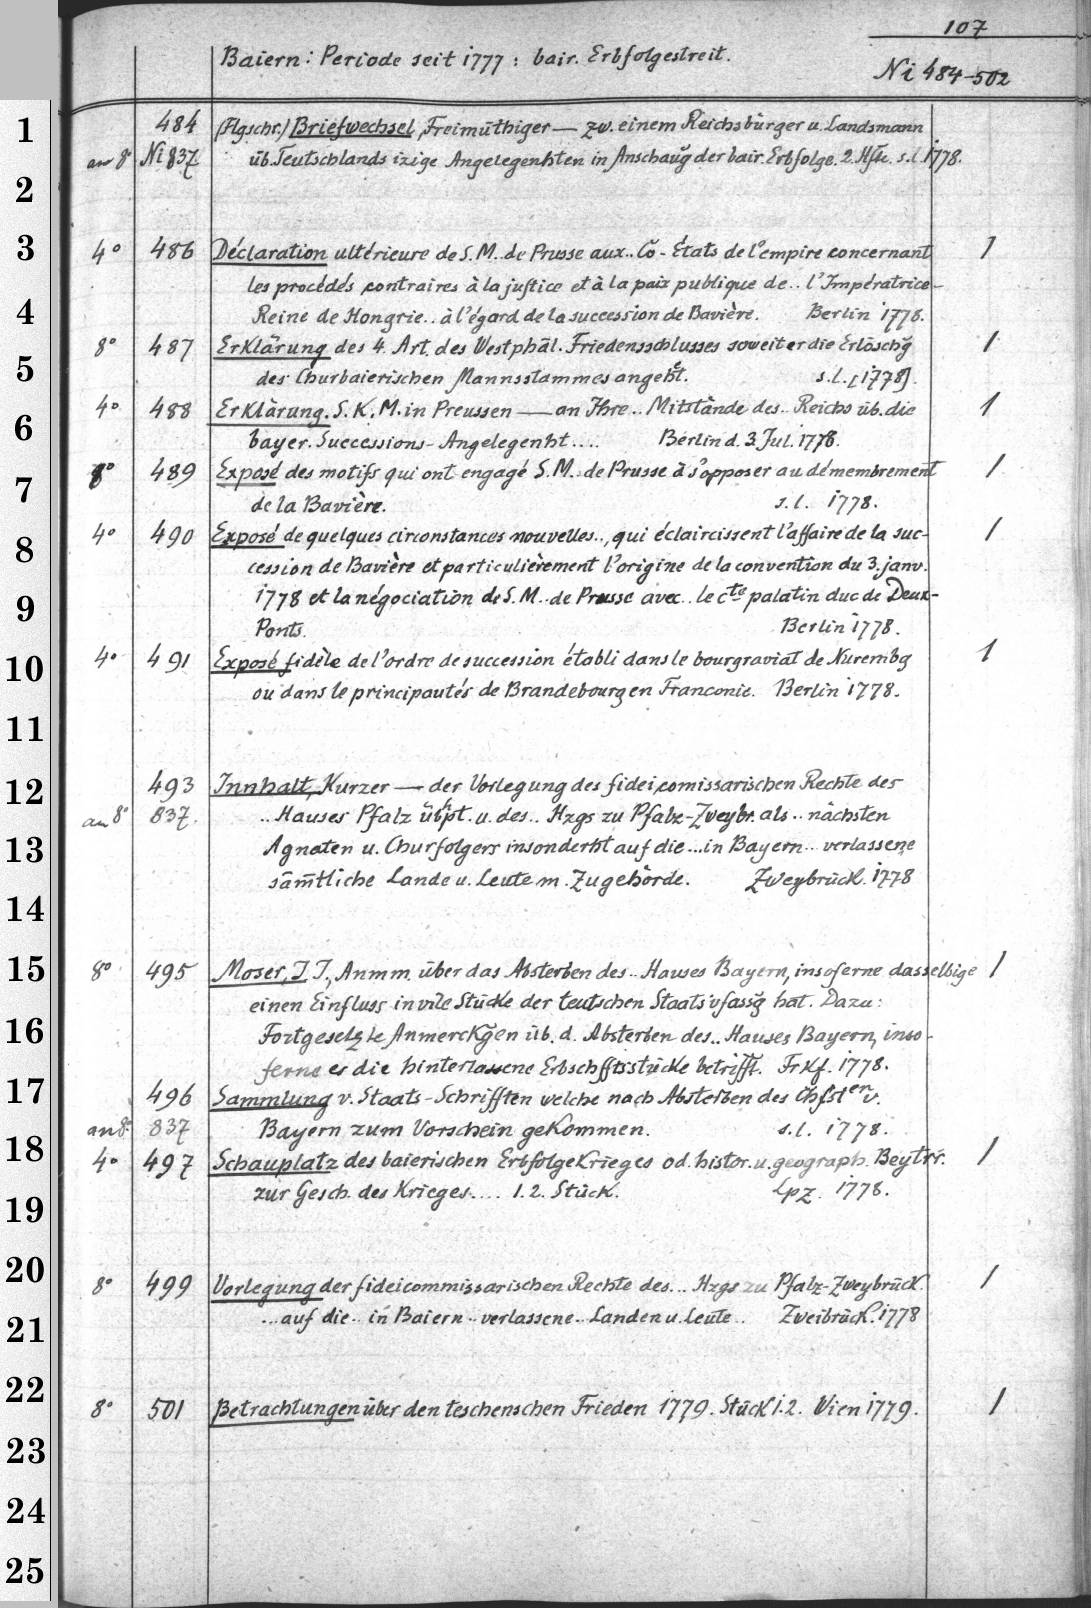 107
Baiern: Periode seit 1777: bair. Erbfolgestreit.
Ni 484-502
1
484 (Flgschr.) Briefwechsel, Freimüthiger — zw. einem Reichsbürger u. Landsmann
an 8° Ni 837 üb. Teutschlands izige Angelegenhten in Anschaug der bair. Erbfolge. 2. Hfte. s.l. 1778.
2
3
4° 486 Déclaration ultérieure de S. M. de Prusse aux.. Cõ-États de l'empire concernant 1
les procédés contraires à la justice et à la paix publique de.. l'Impératrice-
4
Reine de Hongrie.. à l'égard de la succession de Bavière. Berlin 1778.
8° 487 Erklärung des 4. Art. des Westphäl. Friedensschlusses soweit er die Erlöschg 1
5
des Churbaierischen Mannsstammes angeht. s.l. [1778].
4° 488 Erklärung. S. K. M. in Preussen — an Ihre.. Mitstände des.. Reichs üb. die 1
6
bayer. Successions-Angelegenht.... Berlin d. 3. Jul. 1778.
8° 489 Exposé des motifs qui ont engagé S. M. de Prusse à s'opposer au démembrement 1
7
de la Bavière. s.l. 1778.
4° 490 Exposé de quelques circonstances nouvelles.., qui éclaircissent l'affaire de la suc- 1
8
cession de Bavière et particulièrement l'origine de la convention du 3. janv.
1778 et la négociation de S. M. de Prusse avec.. le cte palatin duc de Deux-
9
Ponts. Berlin 1778.
4° 491 Exposé fidèle de l'ordre de succession établi dans le bourgraviat de Nurembg 1
10
ou dans le principautés de Brandebourg en Franconie. Berlin 1778.
11
493 Innhalt, Kurzer — der Vorlegung des fideicomissarischen Rechte des
12
an 8° 837. .. Hauses Pfalz übpt. u. des.. Hzgs zu Pfalz-Zweybr. als.. nächsten
13
Agnaten u. Churfolgers insonderht auf die... in Bayern.. verlassene
sämtliche Lande u. Leute m. Zugehörde. Zweybrück. 1778
14
15
8° 495 Moser, J. J., Anmm. über das Absterben des.. Hauses Bayern, insoferne dasselbige 1
einen Einfluss in vile Stücke der teutschen Staatsvfassg hat. Dazu:
16
Fortgesetzte Anmerckgen üb. d. Absterben des.. Hauses Bayern, inso-
ferne es die hinterlassene Erbschfftsstücke betrifft. Frkf. 1778.
17
496 Sammlung v. Staats-Schrifften welche nach Absterben des Chfsten v.
an 8° 837 Bayern zum Vorschein gekommen. s.l. 1778.
18
4° 497 Schauplatz des baierischen Erbfolgekrieges od. histor. u. geograph. Beytrr. 1
zur Gesch. des Krieges.... 1. 2. Stück. Lpz. 1778.
19
20
8° 499 Vorlegung der fideicommissarischen Rechte des... Hzgs zu Pfalz-Zweybrück 1
...auf die.. in Baiern.. verlassene.. Landen u. Leute.. Zweibrück. 1778
21
22
8° 501 Betrachtungen über den teschenschen Frieden 1779. Stück 1. 2. Wien 1779. 1
23
24
25